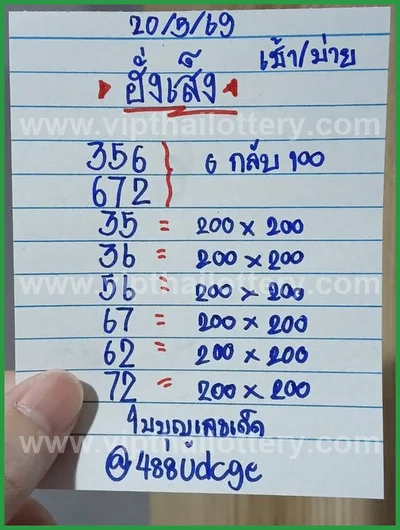 20/5/69
เช้า/บ่าย
ฮั่งเส็ง
www.vipthailottery.com
356
672
6 กลับ 100
35 = 200 x 200
36 = 200 x 200
www.vipthailottery.com
56 = 200 x 200
67 = 200 x 200
62 = 200 x 200
72 = 200 x 200
www.vipthailottery.com
@488udcge